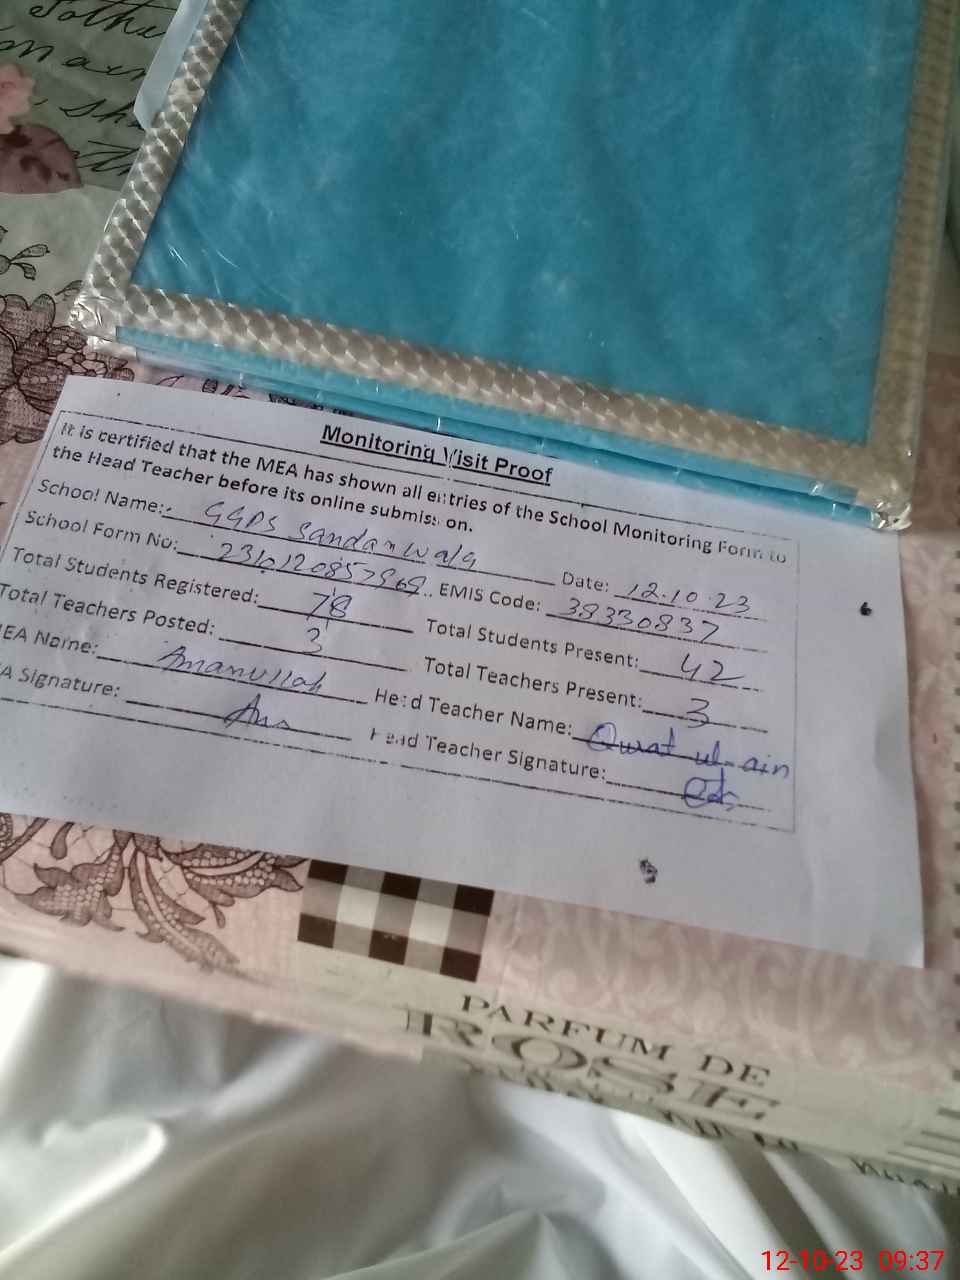 Monitoring Visit Proof
It is certified that the MEA has shown all entries of the School Monitoring Form to
the Head Teacher before its online submission.
School Name: GGPS Sandanwala Date: 12.10.23
School Form No: EMIS Code: 38330837
Total Students Registered: 78 Total Students Present: 42
Total Teachers Posted: 3 Total Teachers Present: 3
MEA Name: Amanullah Head Teacher Name: Qurat ul-ain
A Signature: Head Teacher Signature:
PARFUM DE
ROSE
12-10-23 09:37